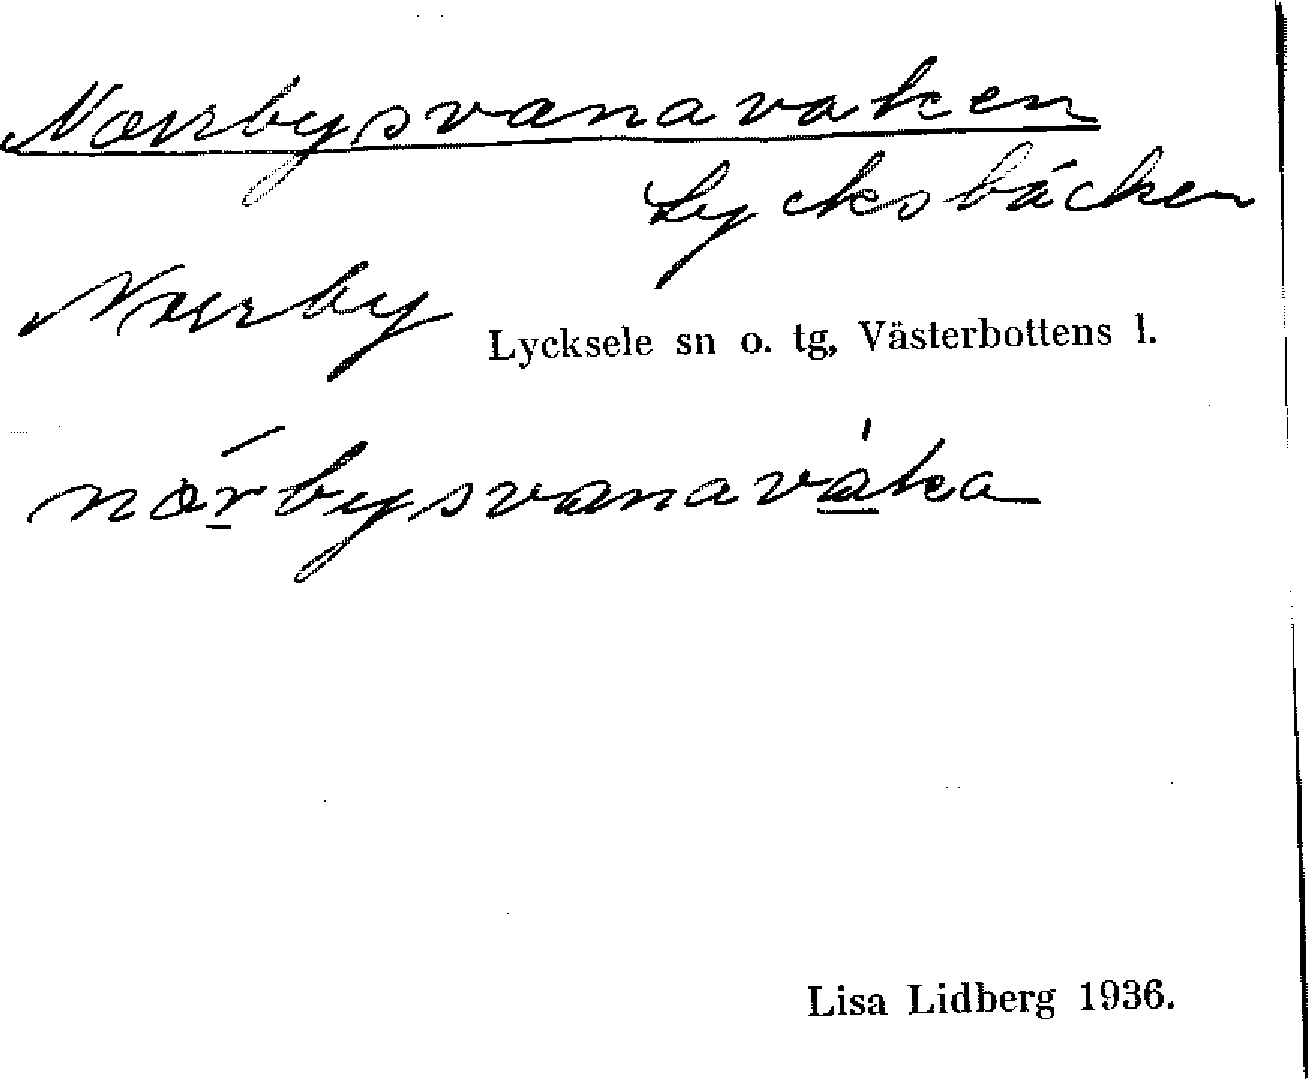 Norrbysvanavaken
Lycksbäcken
Norrby
Lycksele sn o. tg, Västerbottens l.
nórbysvanaváka
Lisa Lidberg 1936.